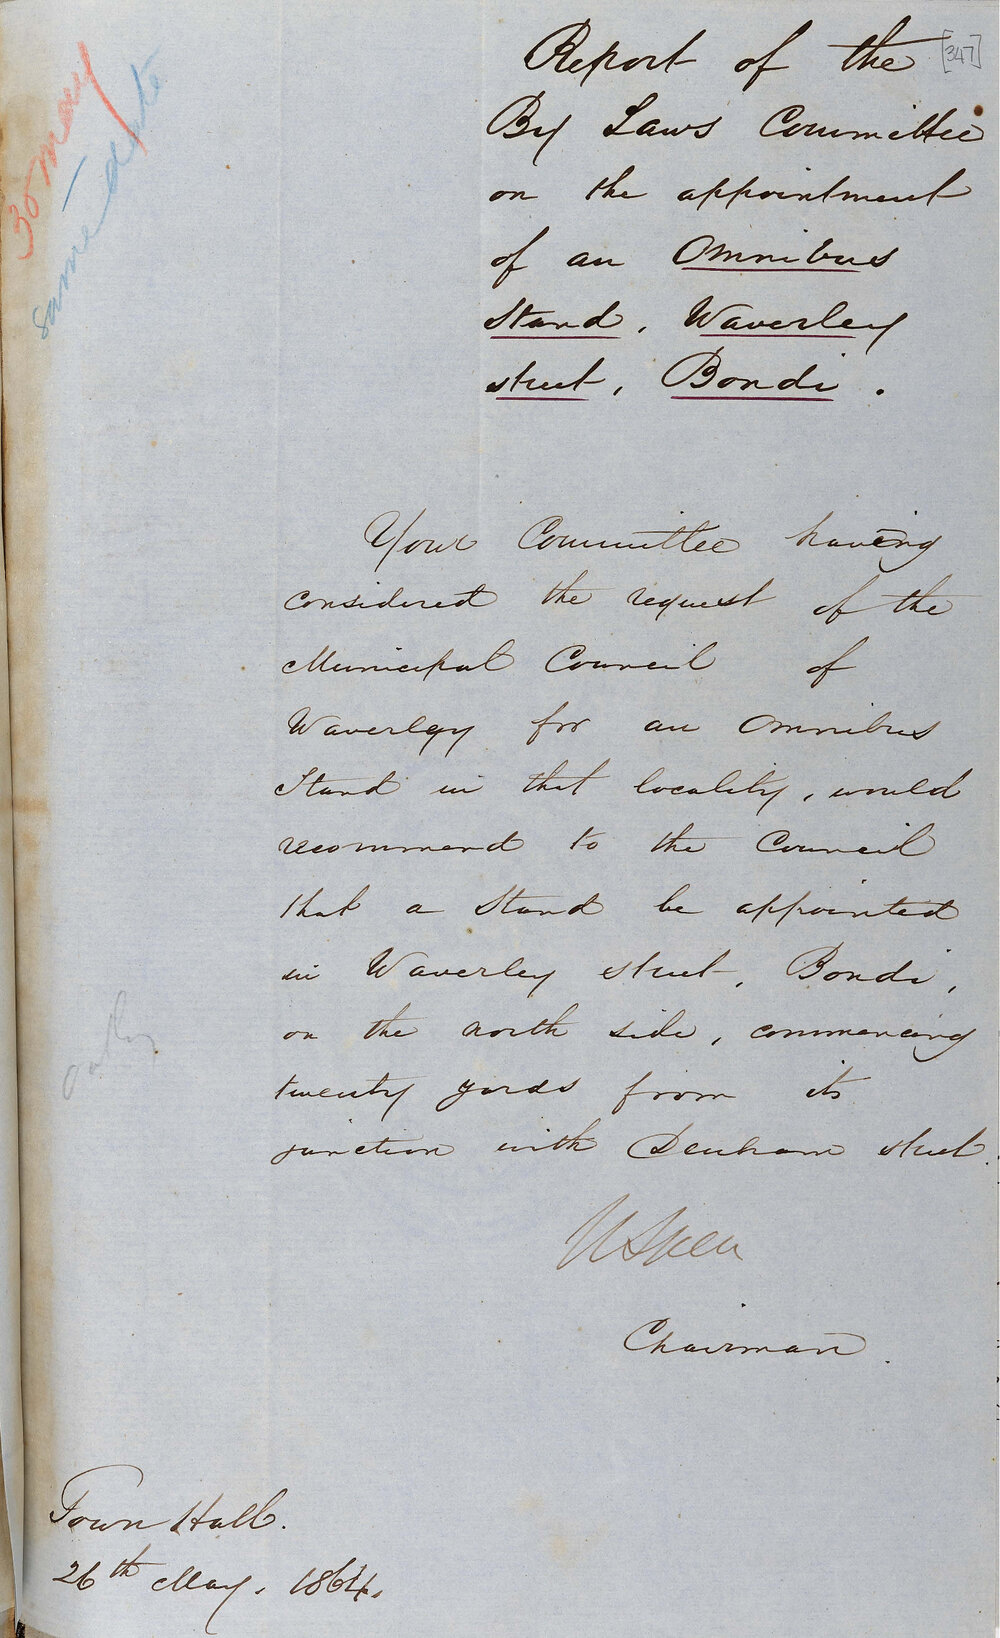 [347]
Report of the
By Laws Committee
on the appointment
of an Omnibus
Stand, Waverley
street, Bondi.
30 May
same date
Your Committee having
considered the request of the
Municipal Council of
Waverley for an Omnibus
Stand in that locality, would
recommend to the Council
that a Stand be appointed
in Waverley street, Bondi,
on the north side, commencing
twenty yards from its
junction with Denham street.
Chairman.
Town Hall.
26th May, 1864.